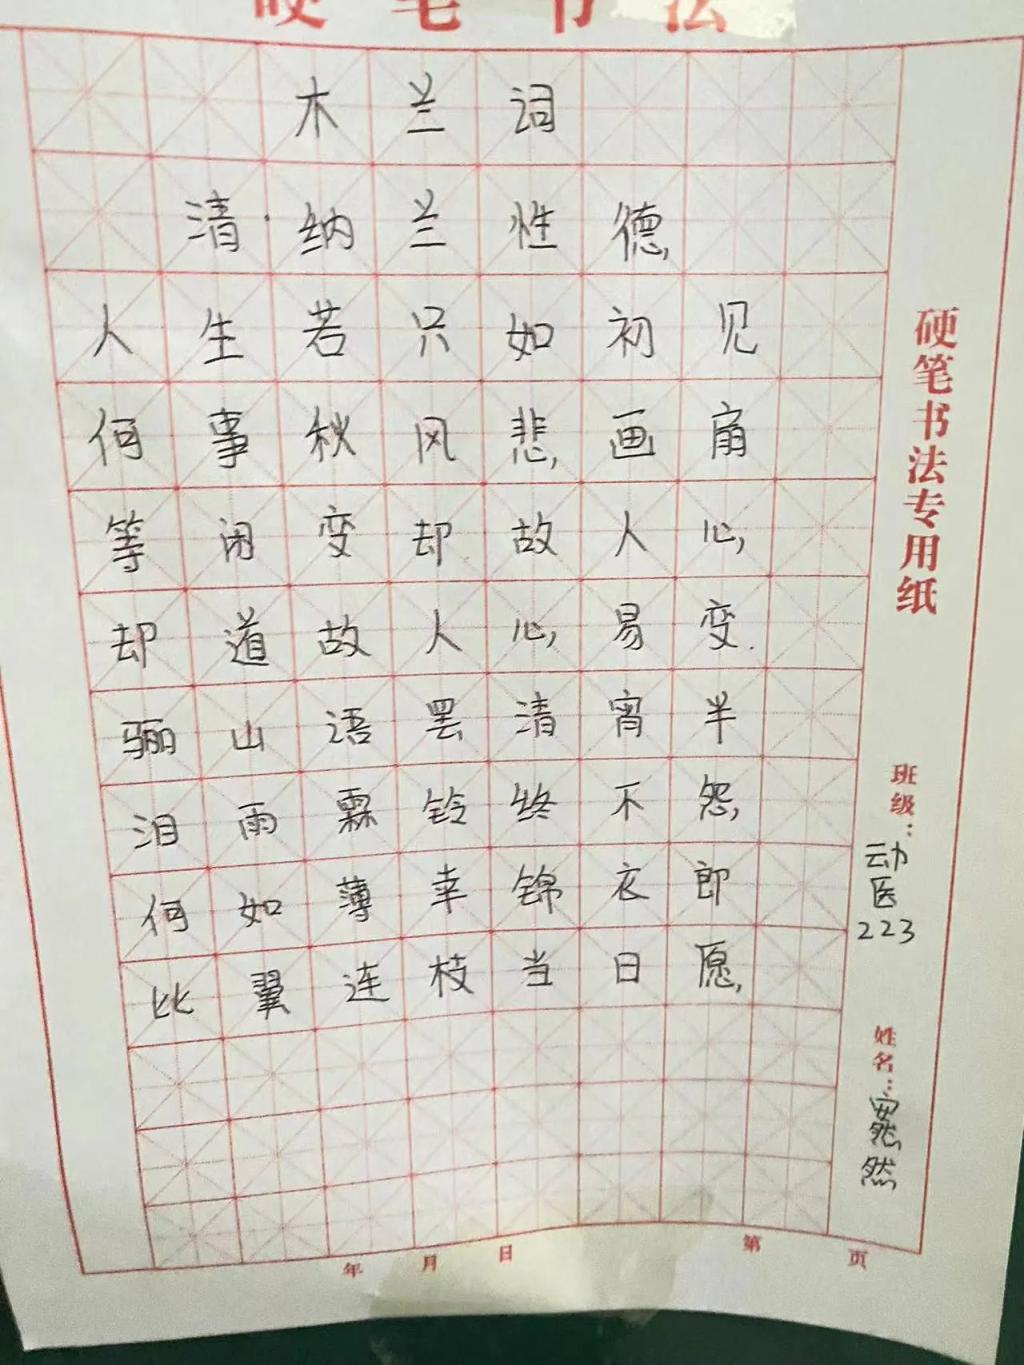 硬笔书法
木兰词
清·纳兰性德
人生若只如初见
何事秋风悲画扇
等闲变却故人心
却道故人心易变
骊山语罢清宵半
泪雨霖铃终不怨
何如薄幸锦衣郎
比翼连枝当日愿
硬笔书法专用纸
班级：动医223
姓名：安然然
年 月 日 第 页